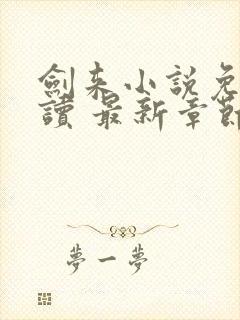 劍来小說免
讀 最新章節
夢一夢